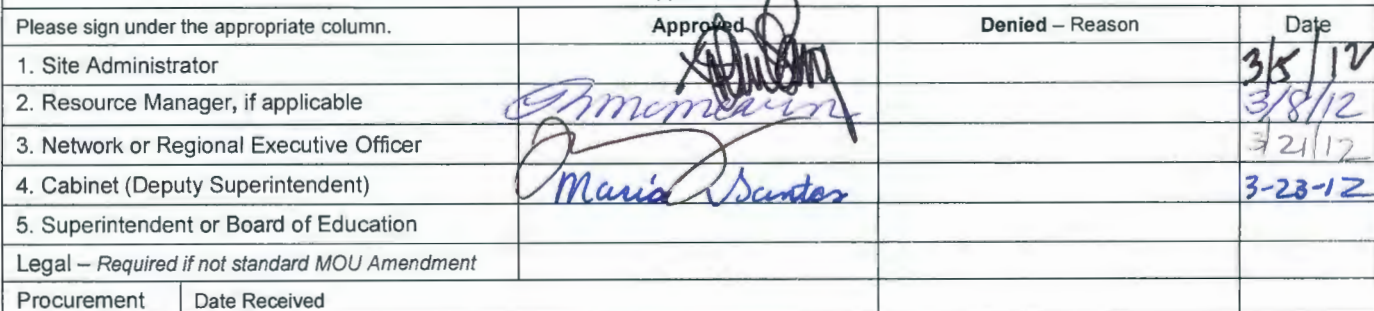 Please sign under the appropriate column. Approved Denied – Reason Date
1. Site Administrator 3/5/12
2. Resource Manager, if applicable 3/8/12
3. Network or Regional Executive Officer 3/21/12
4. Cabinet (Deputy Superintendent) Maria Santos 3-23-12
5. Superintendent or Board of Education
Legal – Required if not standard MOU Amendment
Procurement Date Received